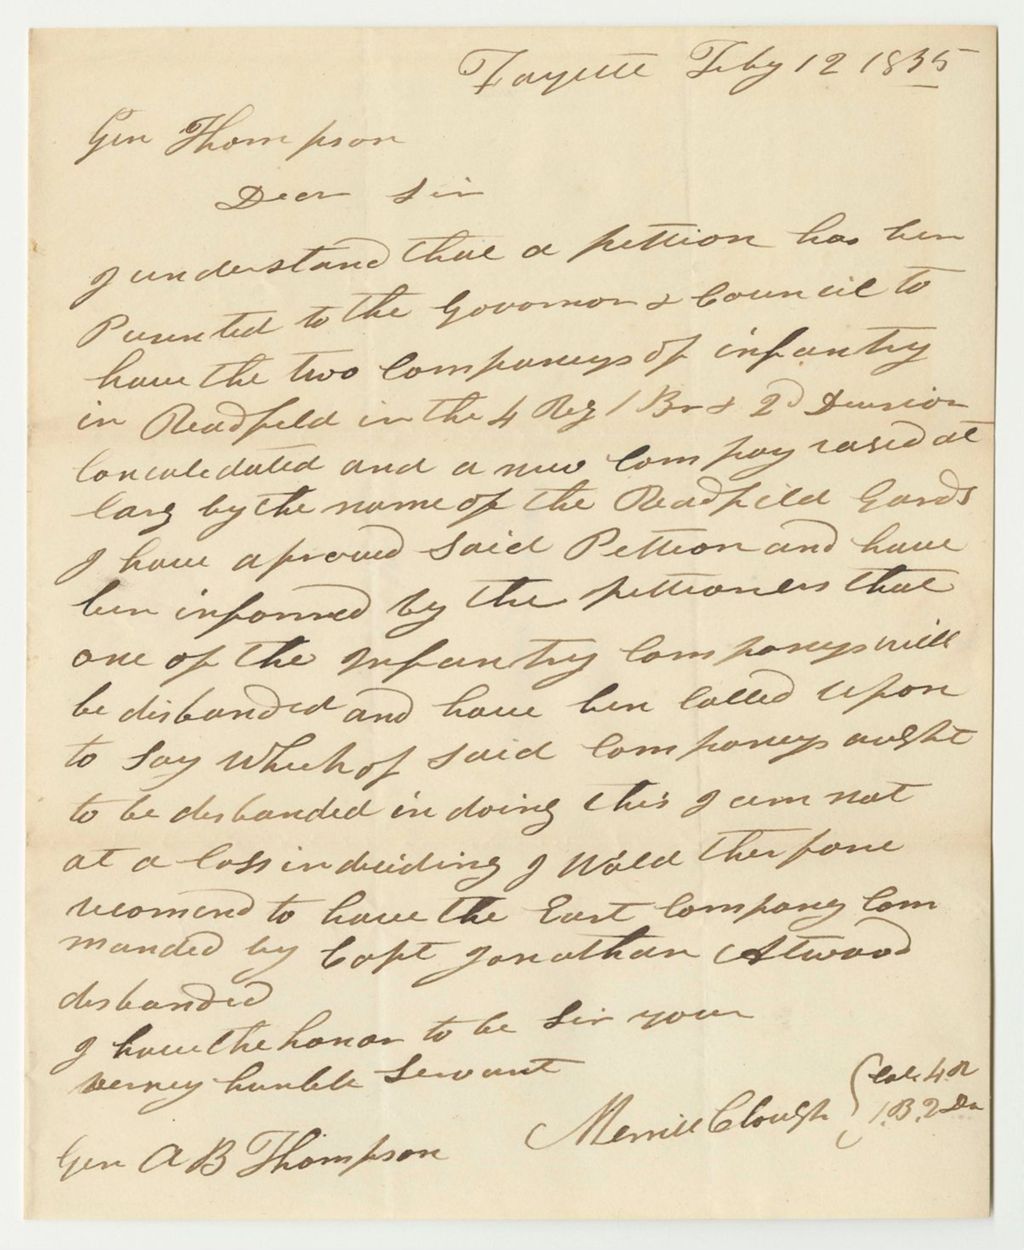 Fayette Feby 12 1835
Gen Thompson
Dear Sir
I understand that a pettion has ben
Presented to the Govornor & Council to
have the two Companeys of infantry
in Readfield in the 4 Reg 1 Br & 2d Devision
Concaledated and a new Compay rased at
larg by the name of the Readfield Gards
I have aproved Said Pettion and have
ben informed by the pettioners that
one of the Infantry Companeys will
be disbanded and have ben Called Upon
to Say Which of Said Companeys aught
to be disbanded in doing this I am not
at a loss in deciding I Wold therfore
recomend to have the East Company Com
manded by Capt Jonathan Atwood
disbanded
I have the honor to be Sir your
verney humble Servant
Merrill Clough Col. 4. R
1. B. 2 Dn
Gen A B Thompson